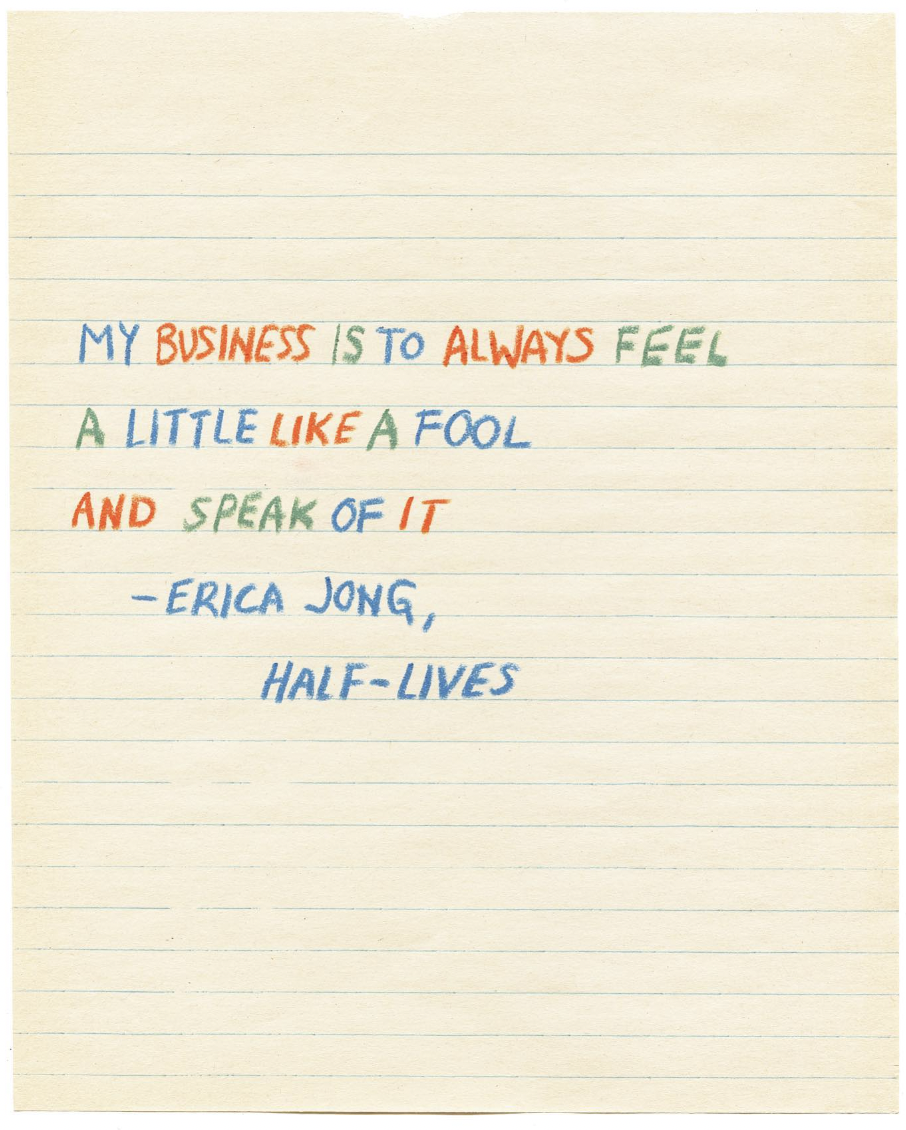 MY BUSINESS IS TO ALWAYS FEEL
A LITTLE LIKE A FOOL
AND SPEAK OF IT
-ERICA JONG,
HALF-LIVES